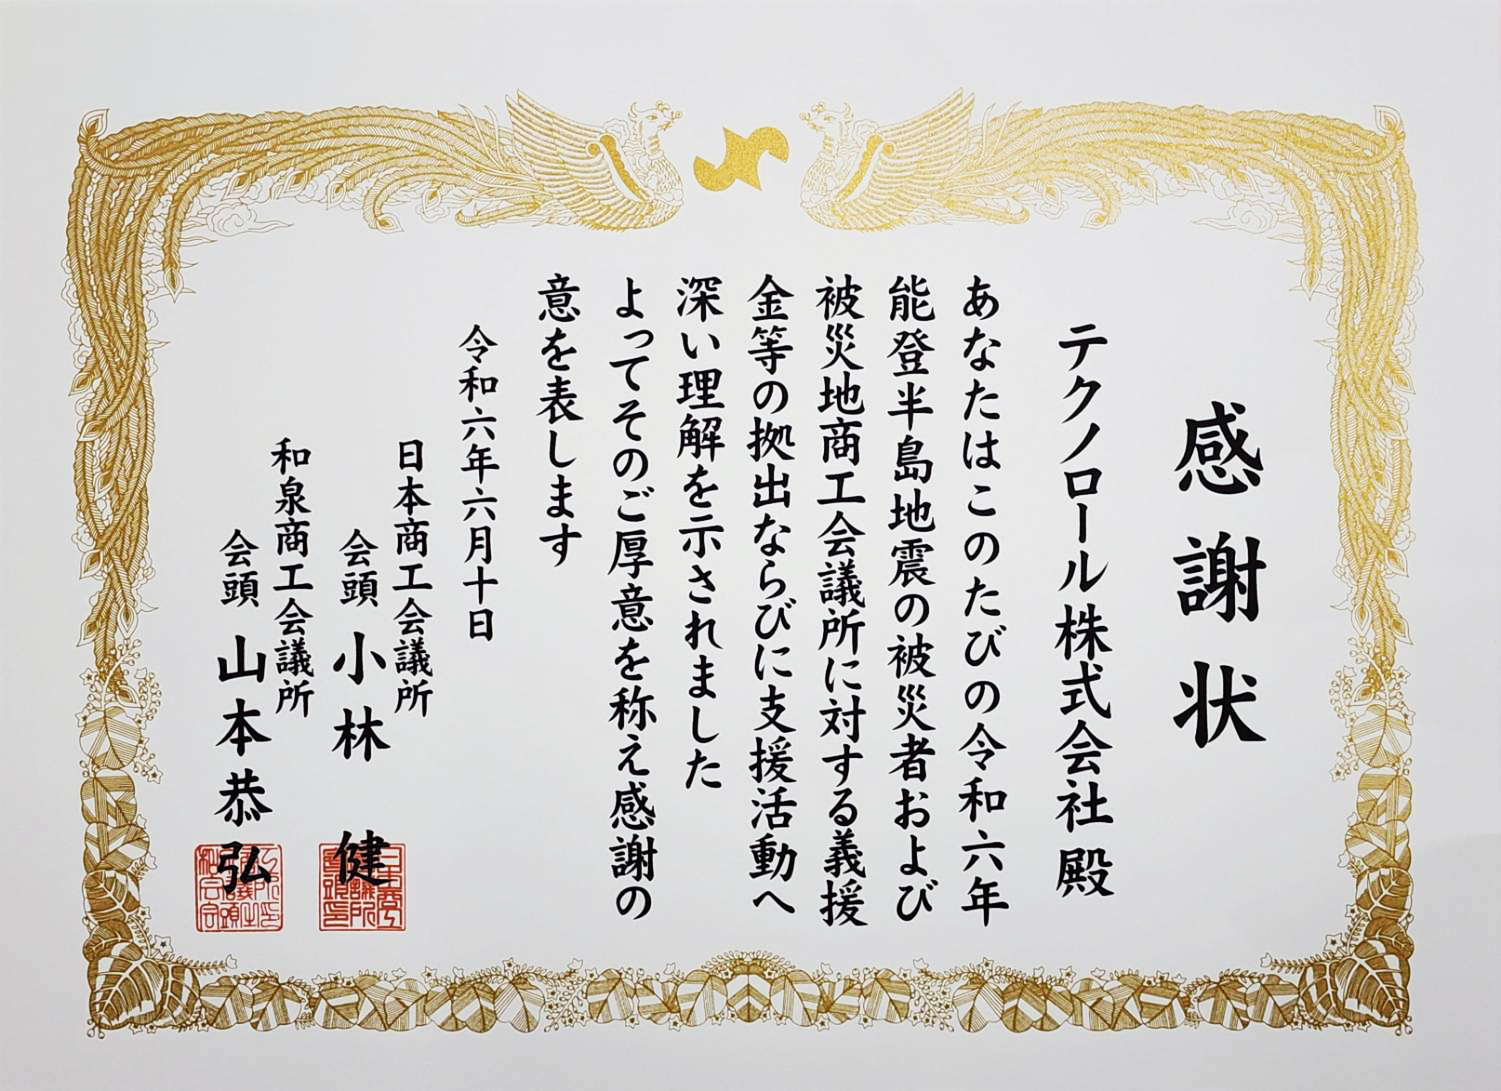 感謝状
テクノロール株式会社 殿
あなたはこのたびの令和六年
能登半島地震の被災者および
被災地商工会議所に対する義援
金等の拠出ならびに支援活動へ
深い理解を示されました
よってそのご厚意を称え感謝の
意を表します
令和六年六月十日
日本商工会議所
会頭 小林 健
和泉商工会議所
会頭 山本恭弘